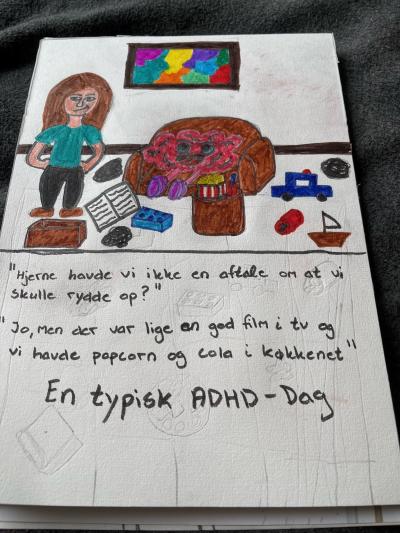 "Hjerne havde vi ikke en aftale om at vi
skulle rydde op?"
"Jo, men der var lige en god film i tv og
vi havde popcorn og cola i køkkenet"
En typisk ADHD-Dag